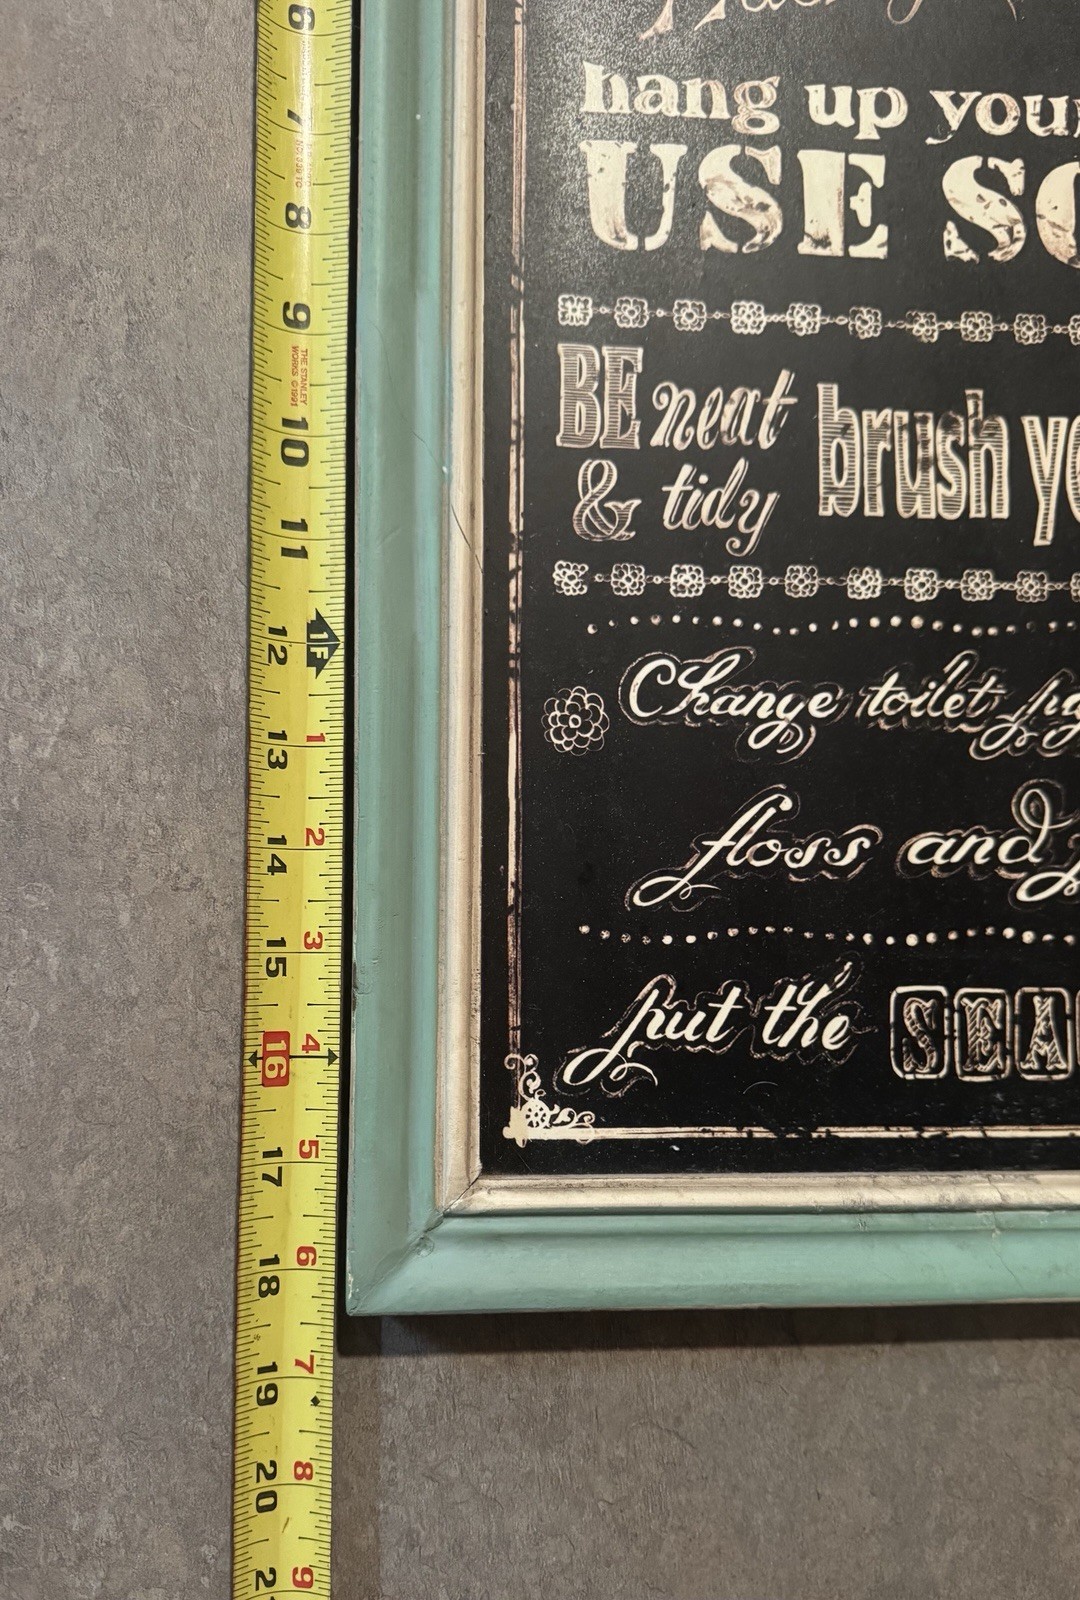 hang up your
USE SO
BE neat & tidy brush yo
Change toilet pa
floss and
put the SEA
6
7
8
9
THE STANLEY WORKS ©1991
10
11
1F
12
1
13
2
14
3
15
4
16
5
17
6
18
7
19
8
20
9
2